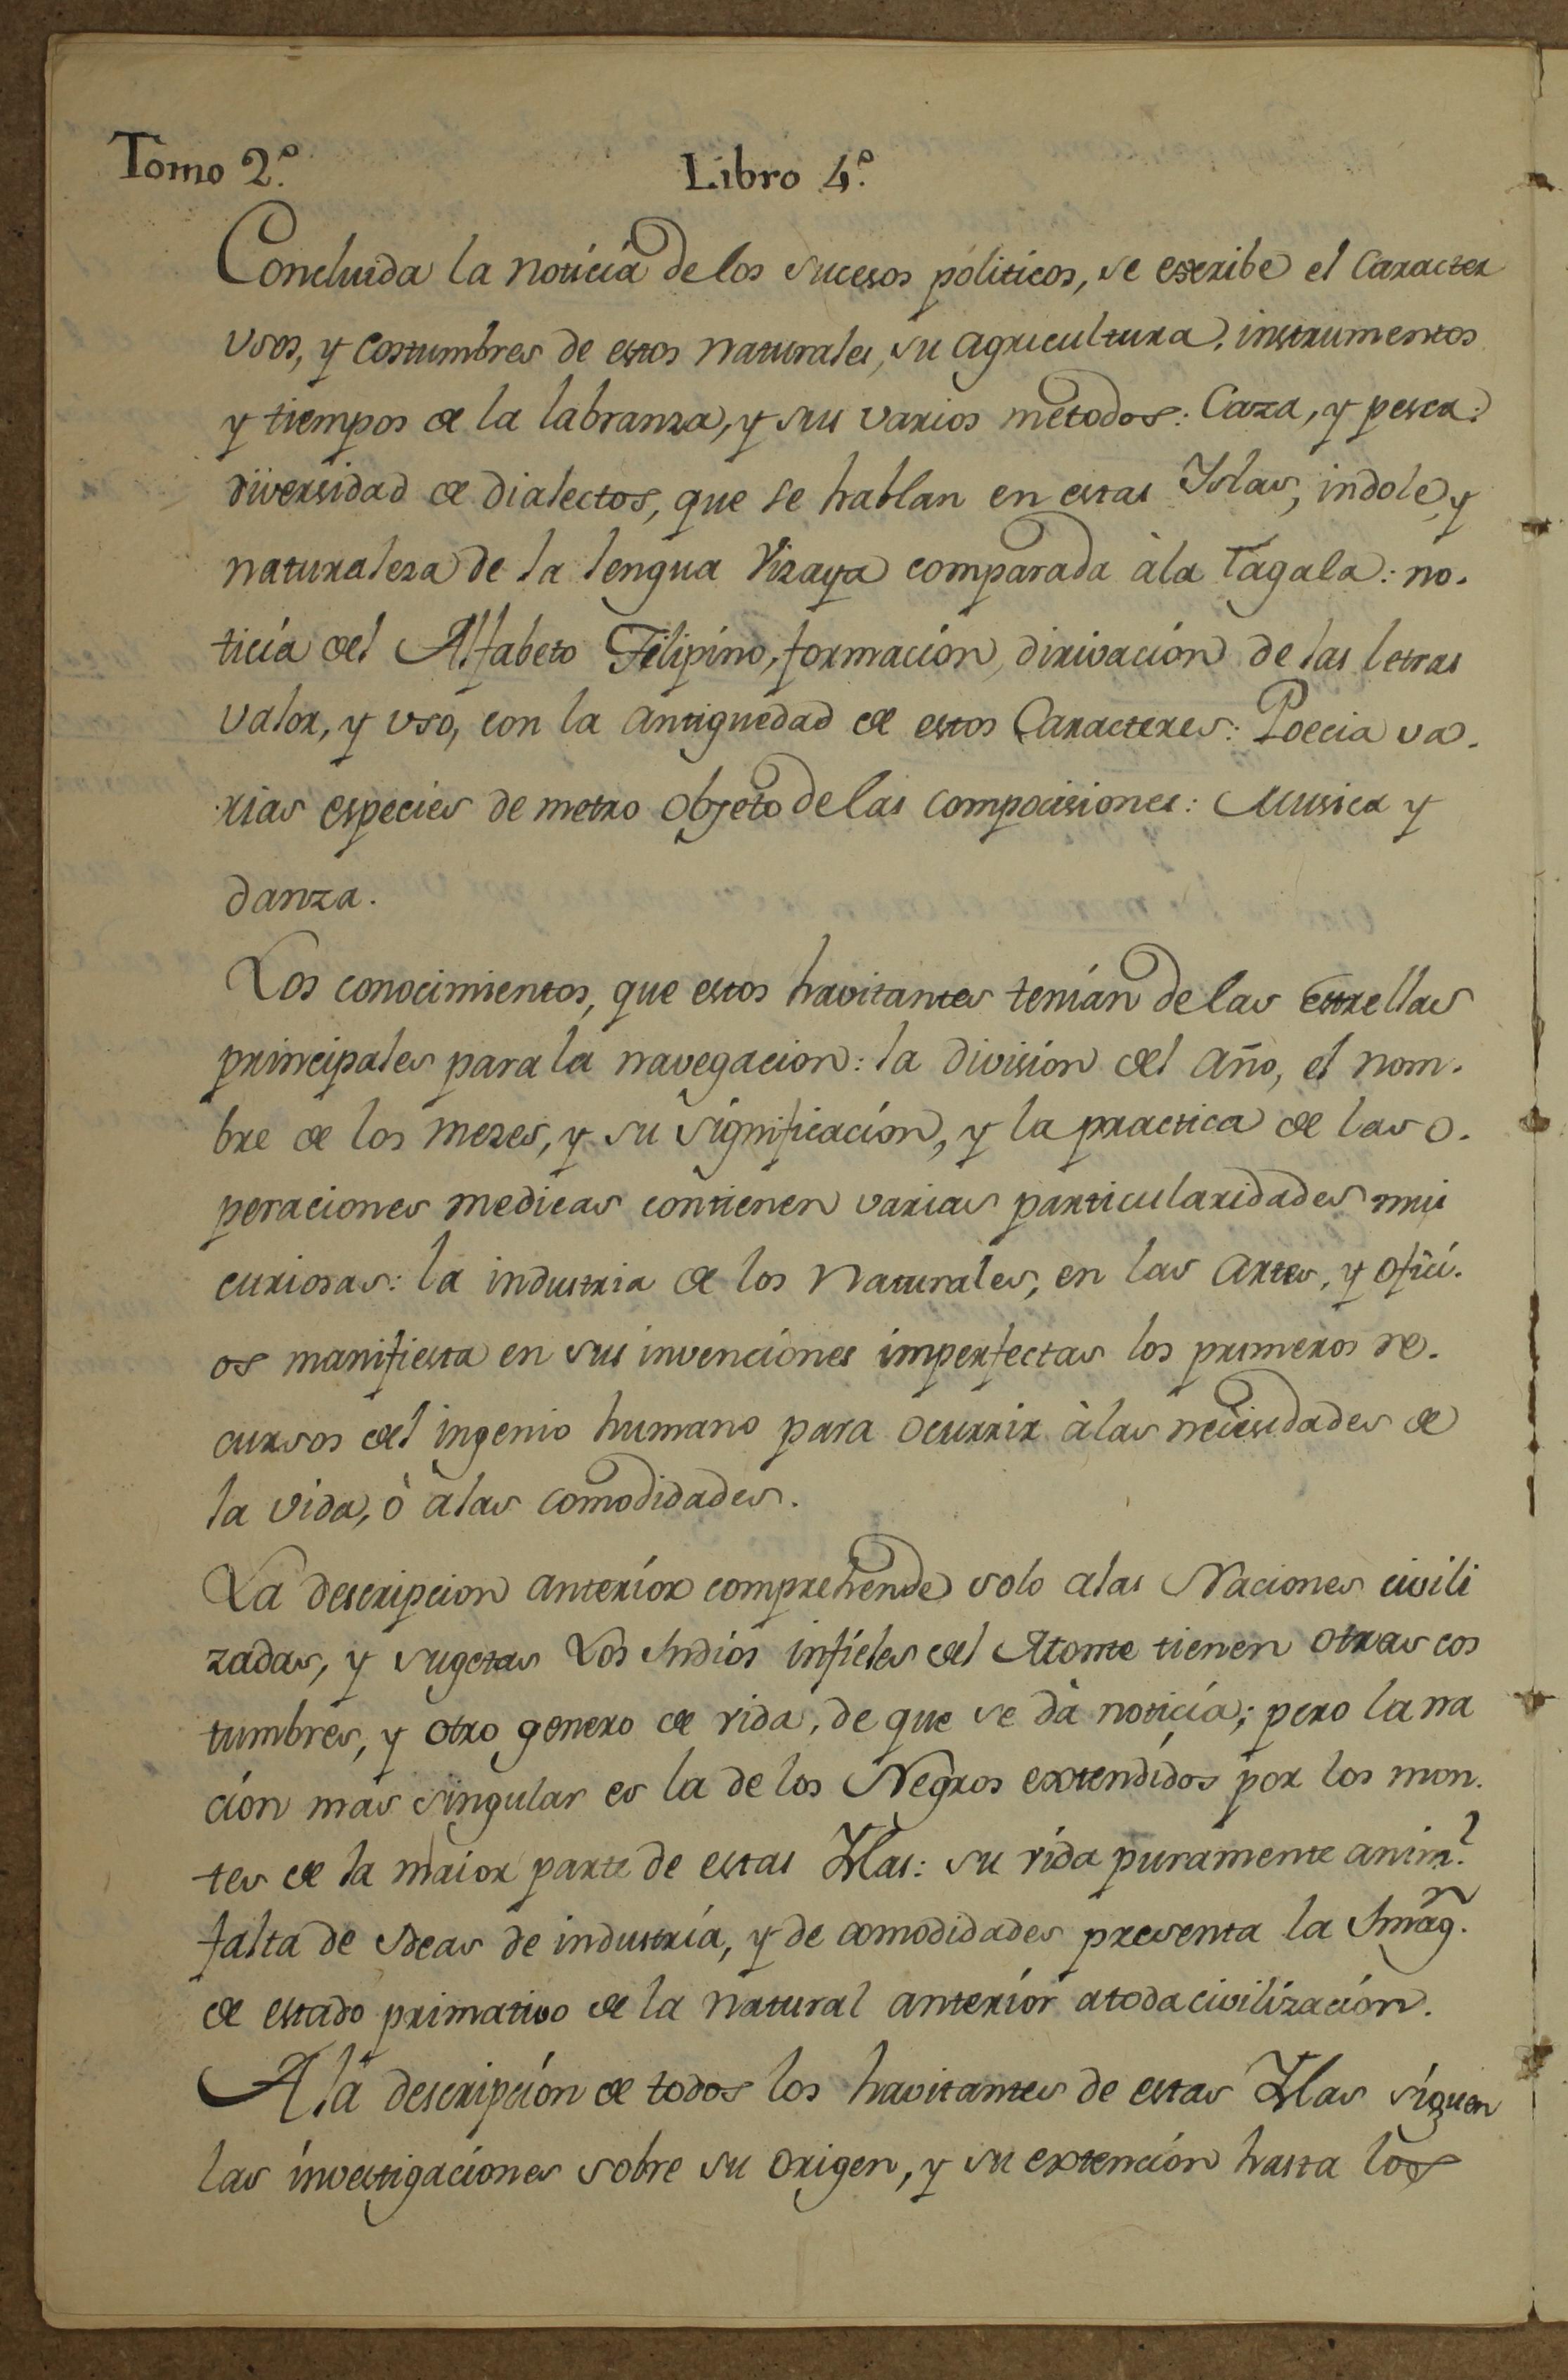 Tomo 2.º Libro 4.º
Concluida la noticia de los sucesos politicos, se escribe el Caracter
Usos, y costumbres de estos naturales, su agricultura, instrumentos
y tiempos de la labranza, y sus varios metodos: Caza, y pesca:
diversidad de dialectos, que se hablan en estas Yslas, indole, y
naturaleza de la lengua Vizaya comparada à la Tagala: no.
ticia del Alfabeto Filipino, formación, dirivación de las letras
valor, y uso, con la antiguedad de estos Caracteres: Poecia va.
rias especies de metro objeto de las compocisiones: Musica y
danza.
Los conocimientos, que estos havitantes tenian de las estrellas
principales para la navegacion: la división del año, el nom.
bre de los mezes, y su significación, y la practica de las o.
peraciones medicas contienen varias particularidades mui
curiosas: la industria de los Naturales, en las artes, y ofici.
os manifiesta en sus invenciones imperfectas los primeros re.
cursos del ingenio humano para ocurrir à las necesidades de
la vida, ò a las comodidades.
La descripcion anterior comprehende solo a las Naciones civili
zadas, y sugetas Los Indios infieles del Monte tienen otras cos
tumbres, y otro genero de vida, de que se dà noticia; pero la na
ción mas singular es la de los Negros extendidos por los mon.
tes de la maior parte de estas Yslas: su vida puramente anim.l
falta de Ideas de industria, y de comodidades presenta la Imag.n
de estado primativo de la natural anterior a toda civilización.
A la descripción de todos los havitantes de estas Yslas siguen
las investigaciones sobre su origen, y su extención hasta los